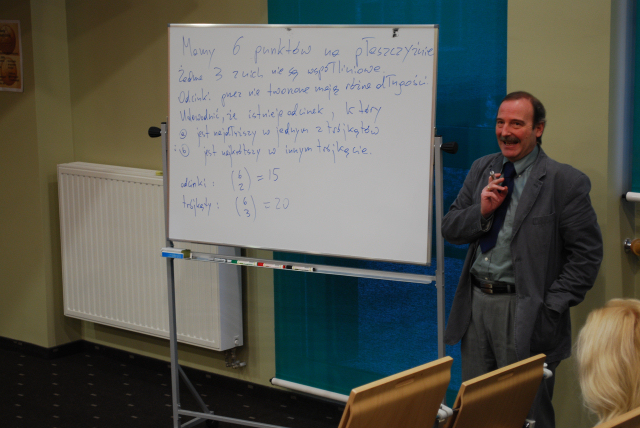 Mamy 6 punktów na płaszczyźnie
Żadne 3 z nich nie są współliniowe
Odcinki przez nie tworzone mają różne długości.
Udowodnić, że istnieje odcinek, który
a jest najdłuższy w jednym z trójkątów
b jest najkrótszy w innym trójkącie.
odcinki: (6 2) = 15
trójkąty: (6 3) = 20